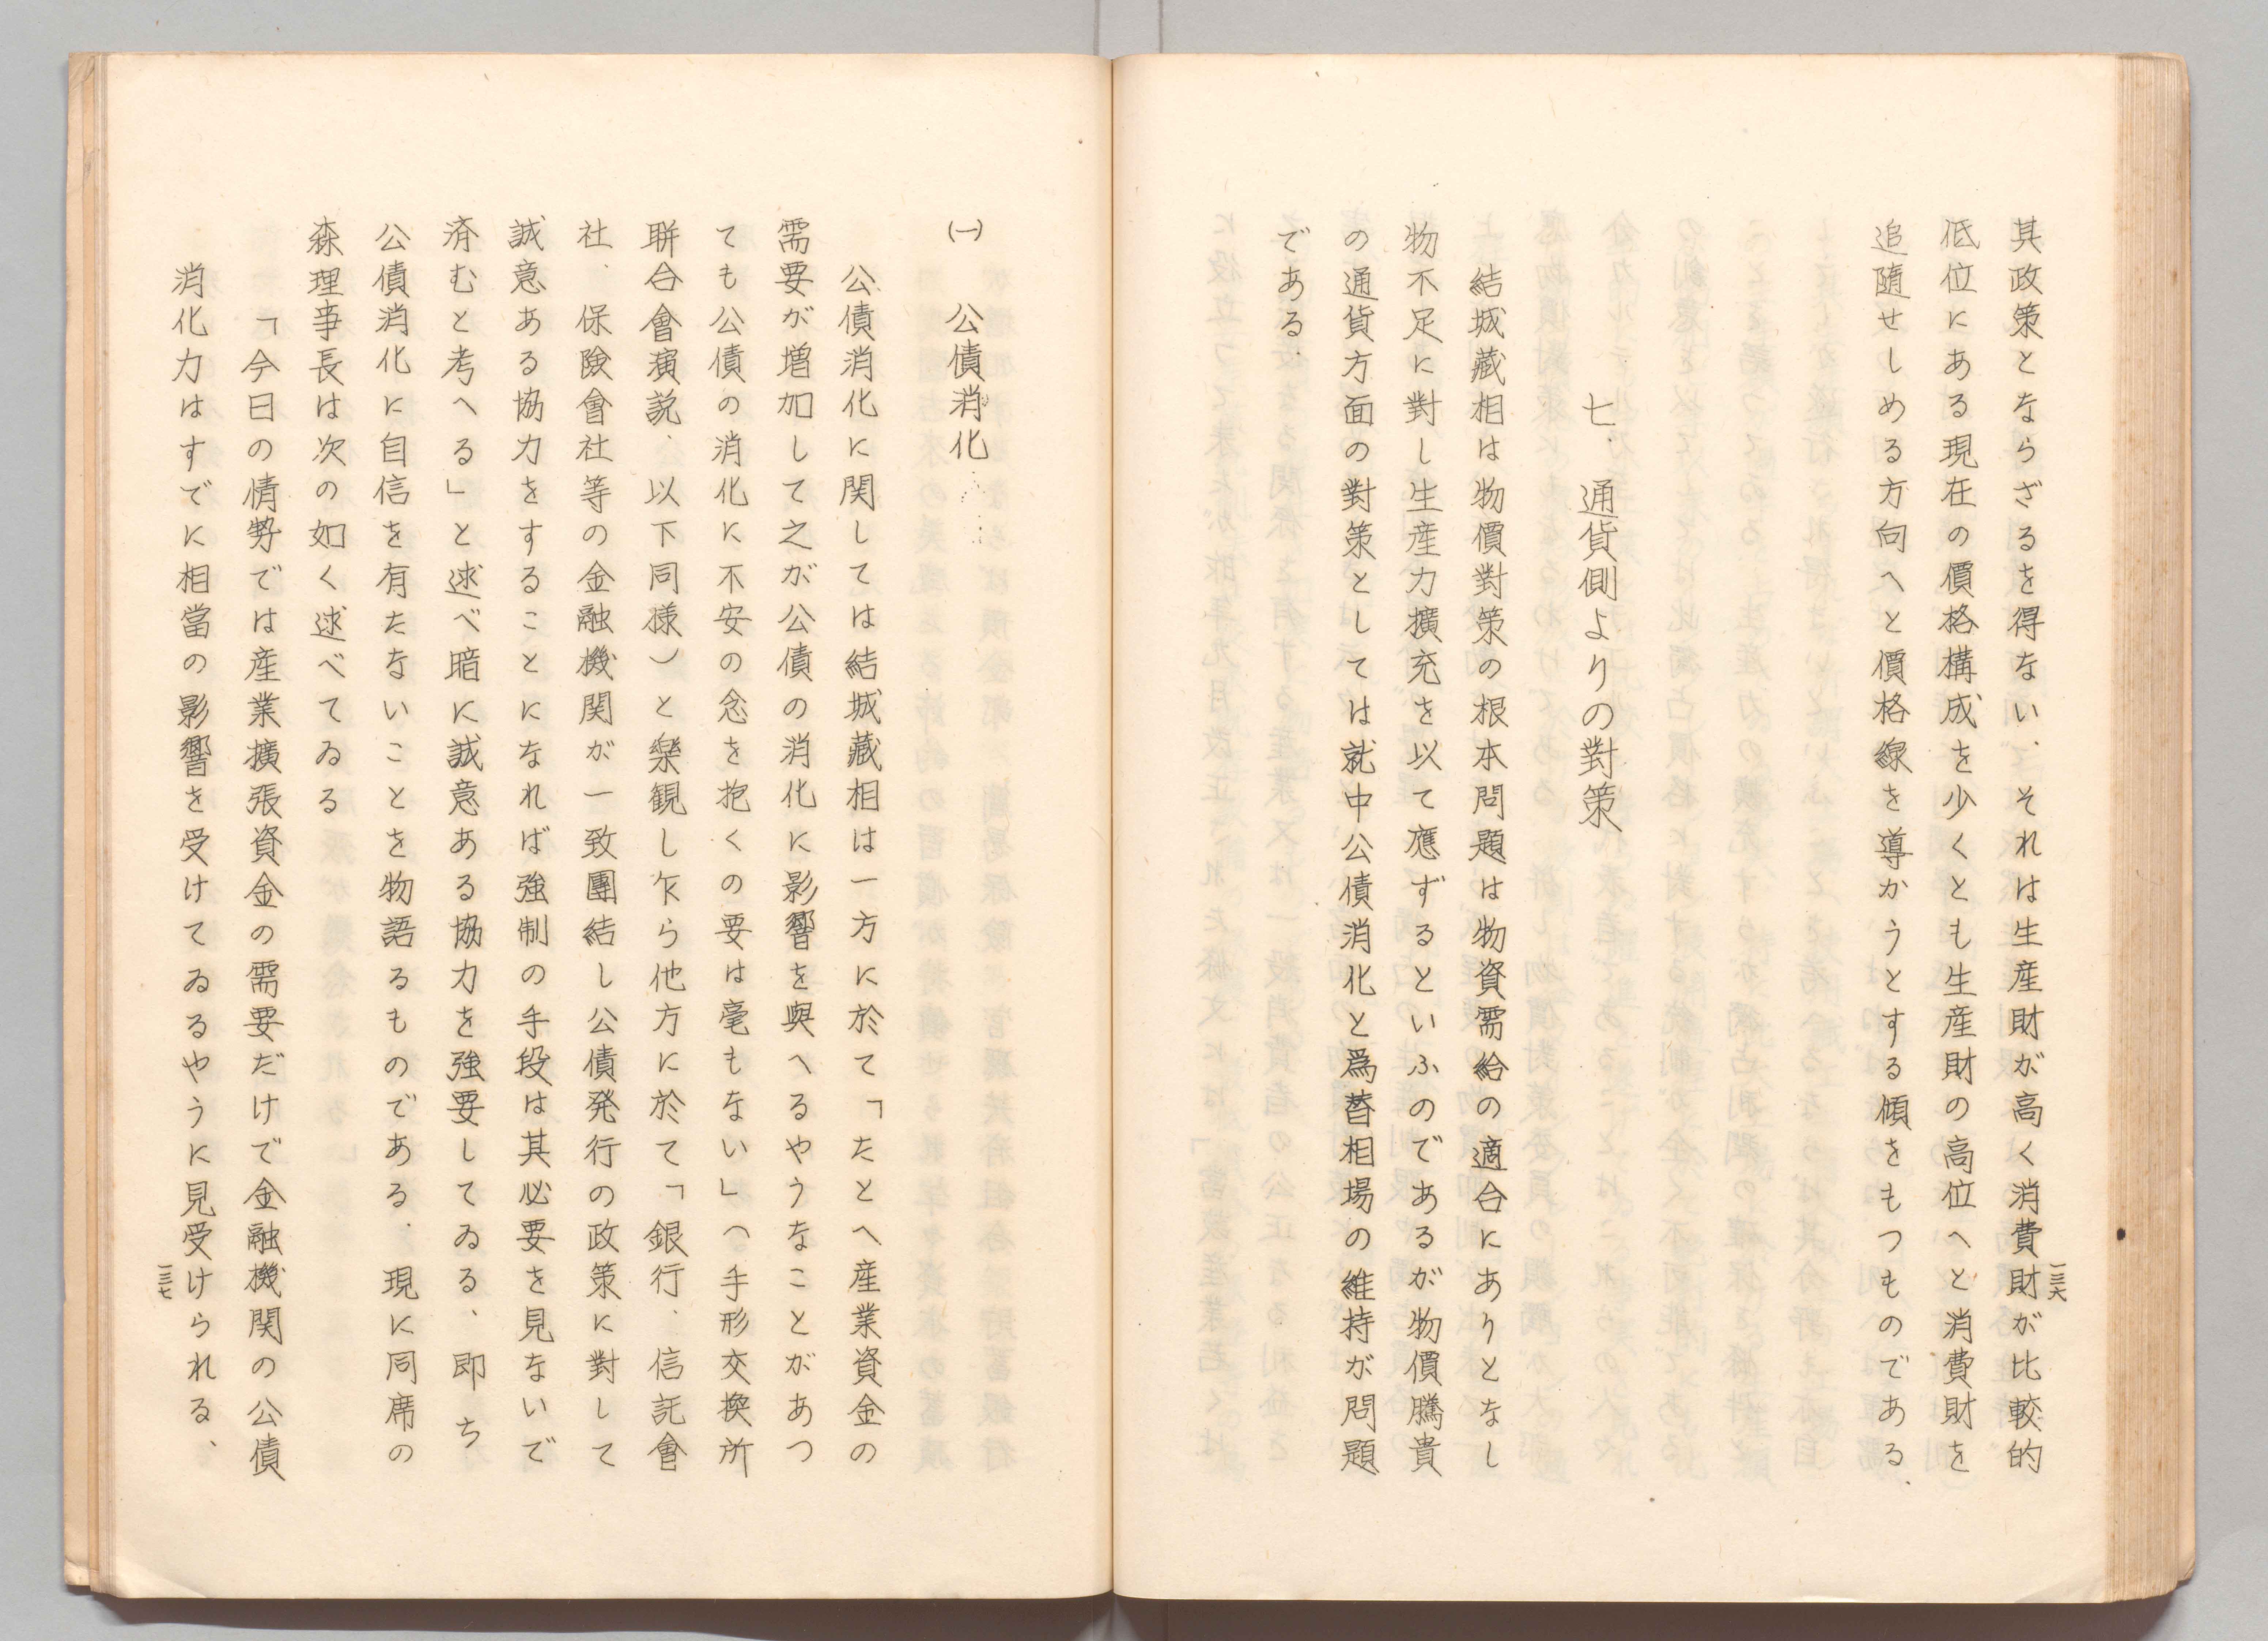 其政策とならざるを得ない、それは生産財が高く消費財が比較的
低位にある現在の價格構成を少くとも生産財の高位へと消費財を
追隨せしめる方向へと價格線を導かうとする傾をもつものである、
七、通貨側よりの對策
結城藏相は物價對策の根本問題は物資需給の適合にありとなし
物不足に對し生産力擴充を以て應ずるといふのであるが物價騰貴
の通貨方面の對策としては就中公債消化と爲替相場の維持が問題
である、
一三六
(一) 公債消化
公債消化に関しては結城藏相は一方に於て「たとへ産業資金の
需要が増加して之が公債の消化に影響を與へるやうなことがあつ
ても公債の消化に不安の念を抱くの要は毫もない」(手形交換所
聯合會演説、以下同様)と楽観し乍ら他方に於て「銀行、信託會
社、保險會社等の金融機関が一致團結し公債発行の政策に對して
誠意ある協力をすることになれば強制の手段は其必要を見ないで
済むと考へる」と述べ暗に誠意ある協力を強要してゐる、即ち
公債消化に自信を有たないことを物語るものである、現に同席の
森理事長は次の如く述べてゐる
「今日の情勢では産業擴張資金の需要だけで金融機関の公債
消化力はすでに相當の影響を受けてゐるやうに見受けられる、
一三七